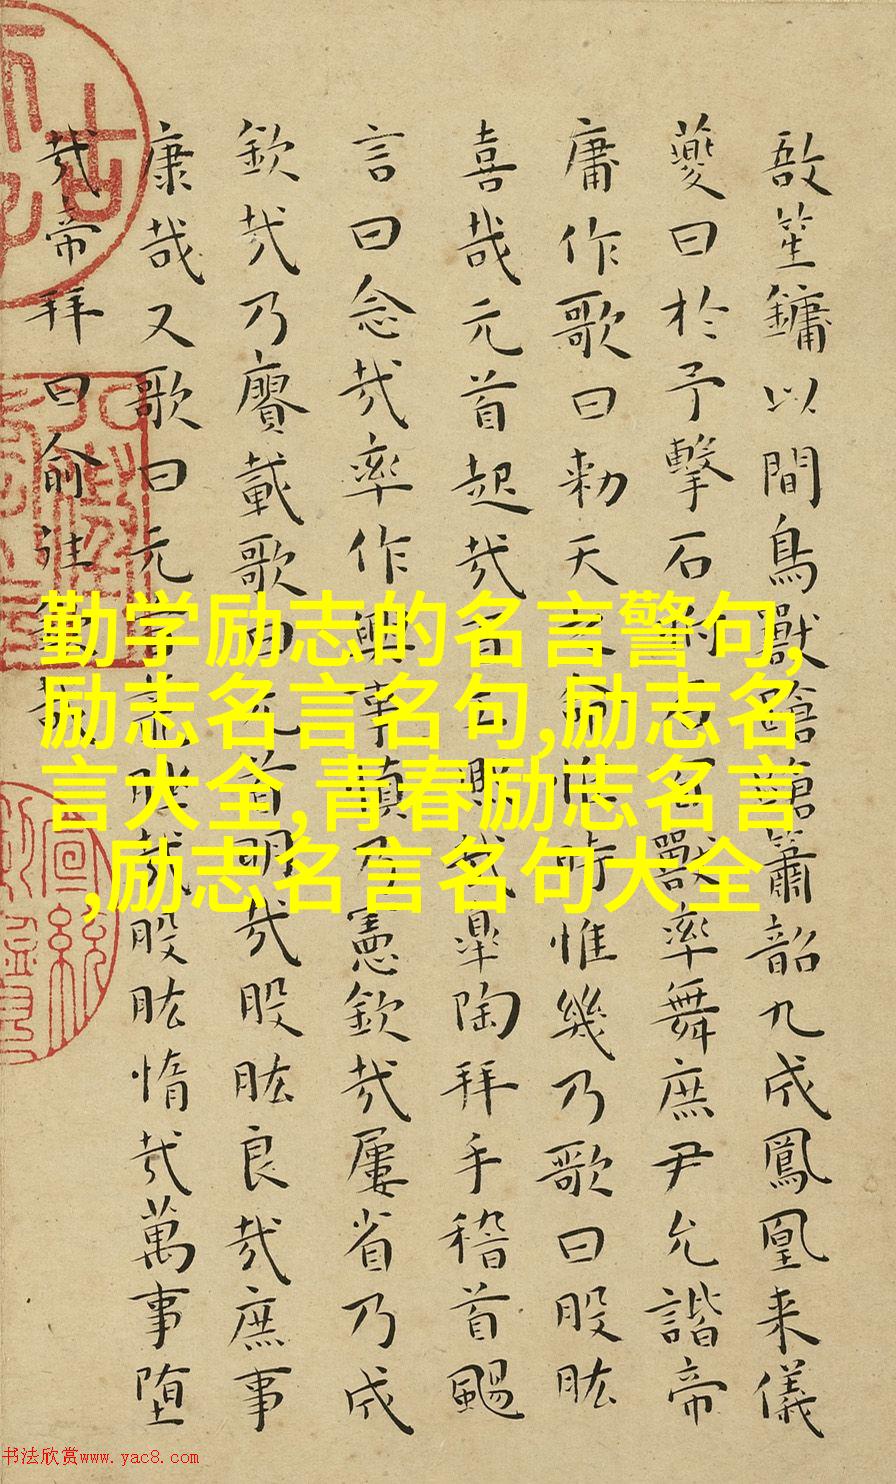 敔笙鏞以間鳥獸蹌蹌簫韶九成鳳凰来儀
夔曰於予擊石拊石百獸率舞庶尹允諧帝
庸作歌曰勑天之命惟時惟幾乃歌曰股肱
喜哉元首起哉百工熙哉皋陶拜手稽首颺
言曰念哉率作興事慎乃憲欽哉屢省乃成
欽哉乃賡載歌曰元首明哉股肱良哉庶事
康哉又歌曰元首叢脞哉股肱惰哉萬事堕
哉帝拜曰俞往欽哉
勤学励志的名言警句,
励志名言名句,励志名
言大全,青春励志名言
,励志名言名句大全
书法欣赏www.yac8.com